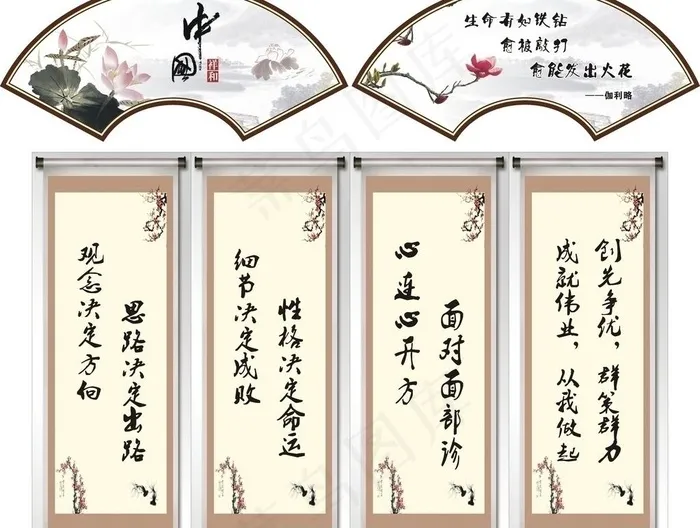 中國
祥和
生命有如铁钻
愈被敲打
愈能发出火花
——伽利略
观念决定方向
思路决定出路
细节决定成败
性格决定命运
心连心开方
面对面部诊
创先争优，群策群力
成就伟业，从我做起